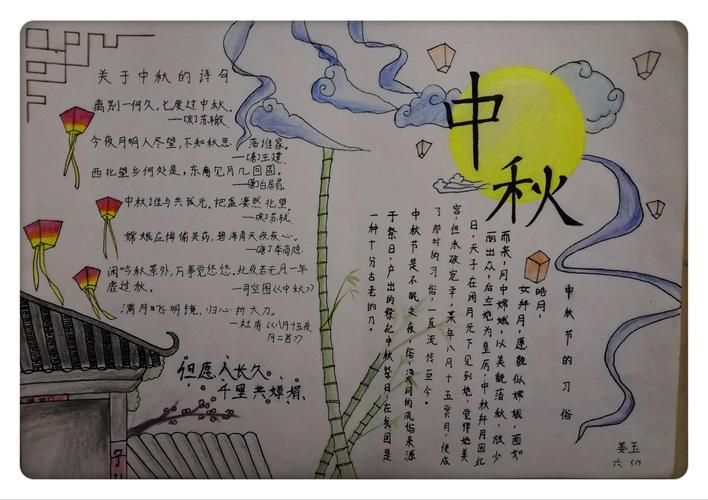 关于中秋的诗句
离别一何久，七度过中秋。
—[宋]苏辙
今夜月明人尽望，不知秋思 落谁家。
—[唐]王建
西北望乡何处是，东南见月几回圆。
—[唐]白居易
中秋谁与共孤光，把盏凄然北望。
—[宋]苏轼
嫦娥应悔偷灵药，碧海青天夜夜心。
—[唐]李商隐
闲吟秋景外，万事觉悠悠。此夜若无月一年
虚过秋。
—司空图《中秋》
满月飞明镜，归心折大刀。
—杜甫《八月十五夜
月二首》
但愿人长久，
千里共婵娟。
中秋
中秋节的习俗
皓月。
女拜月，愿貌似嫦娥，面如
而来，月中嫦娥，以美貌荡秋，故少
丽出众，后立她为皇后，中秋拜月因此
日，天子在闲月光下见到她，觉得她美
宫，但未 定幸。某年八月十五赏月，便成
了那时的习俗，一直流传至今。
中秋节是不眠之夜，俗，赏月的风俗来源
于祭日，户出的祭祀中秋祭日，在我国是
一种十分古老的
姜玉
六